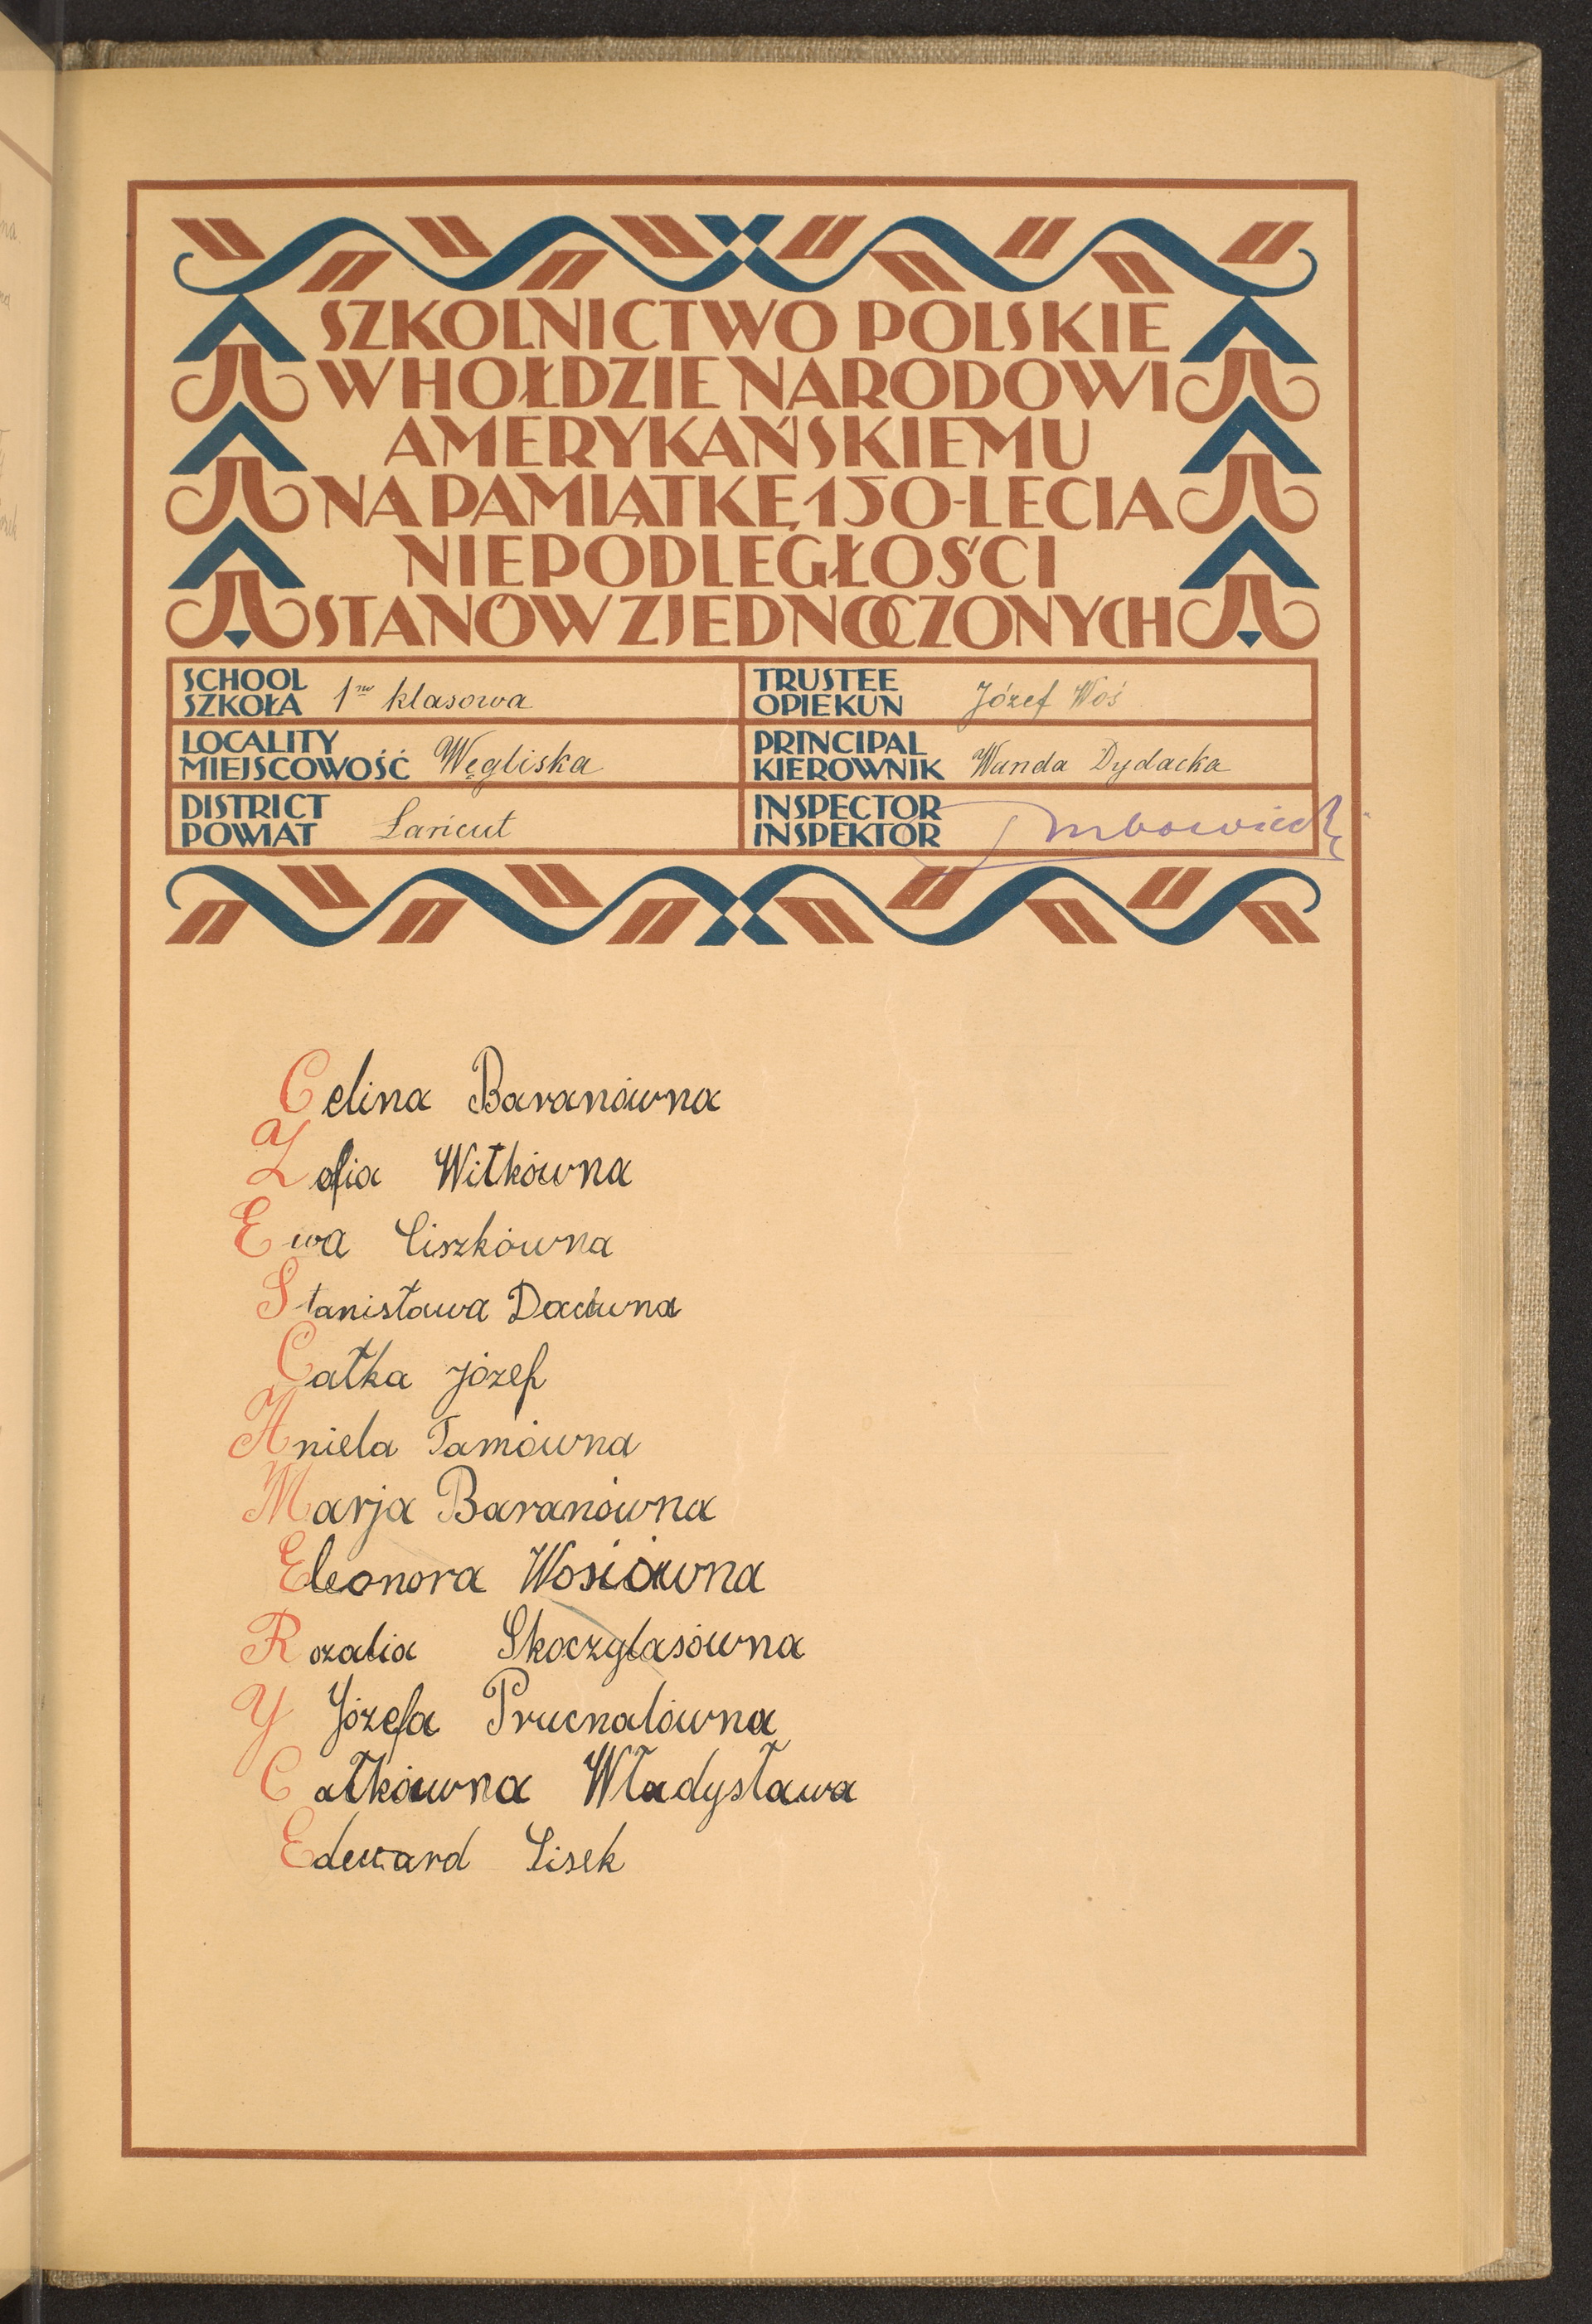 SZKOLNICTWO POLSKIE
W HOŁDZIE NARODOWI
AMERYKAŃSKIEMU
NA PAMIĄTKĘ 150-LECIA
NIEPODLEGŁOŚCI
STANÓW ZJEDNOCZONYCH
SCHOOL
SZKOŁA 1no klasowa
TRUSTEE
OPIEKUN Józef Woś
LOCALITY
MIEJSCOWOŚĆ Węgliska
PRINCIPAL
KIEROWNIK Wanda Dydacka
DISTRICT
POWIAT Łańcut
INSPECTOR
INSPEKTOR
Celina Baranówna
Zofia Witkówna
Ewa Ciszkówna
Stanisława
Całka Józef
Aniela Tamówna
Marja Baranówna
Eleonora Wosiówna
Rozalia Skoczylasówna
J Józefa Prucnalówna
Całkówna Władysława
Edward Lisek